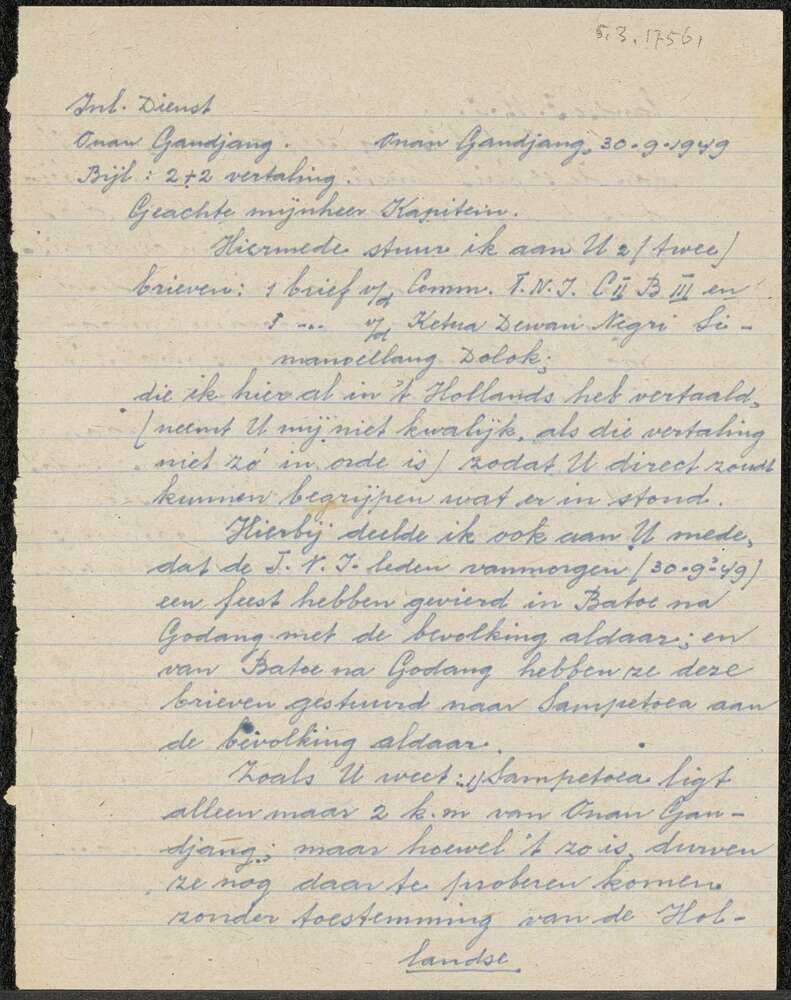 5.3.17561
Inl. Dienst
Onan Gandjang. Onan Gandjang, 30-9-1949
Bijl: 2+2 vertaling.
Geachte mijnheer Kapitein.
Hiermede stuur ik aan U 2 (twee)
brieven: 1 brief v/d Comm. T.N.I. C II B III en
1 -"- v/d Ketua Dewan Negri Si-
manoellang Dolok;
die ik hier al in 't Hollands heb vertaald,
(neemt U mij niet kwalijk, als die vertaling
niet zó in orde is) zodat U direct zoudt
kunnen begrijpen wat er in stond.
Hierbij deelde ik ook aan U mede,
dat de T.N.I. leden vanmorgen (30-9-'49)
een feest hebben gevierd in Batoe na
Godang met de bevolking aldaar; en
van Batoe na Godang hebben ze deze
brieven gestuurd naar Sampetoea aan
de bevolking aldaar.
Zoals U weet: 1) Sampetoea ligt
alleen maar 2 k.m van Onan Gan-
djang; maar hoewel 't zo is, durven
ze nog daar te proberen komen
zonder toestemming van de Hol-
landse.